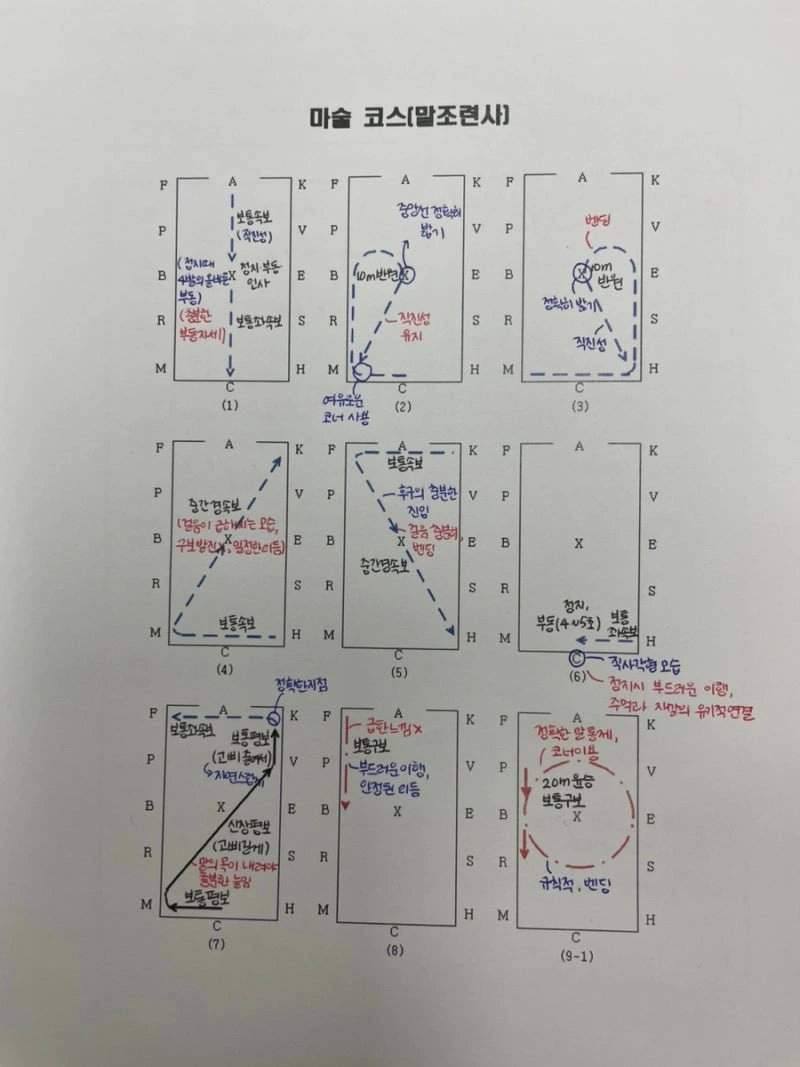 마술 코스(말조련사)
F A K
P V
B X E
R S
M H
C
보통속보
(직진성)
정지·부동
인사
보통좌속보
(정지때
4발의 올바른
부동)
(충분한
부동자세!)
(1)
F A K
P V
B X E
R S
M H
C
중앙선 정확히
밟기
10m반원
직진성
유지
여유로운
코너 사용
(2)
F A K
P V
B X E
R S
M H
C
벤딩
10m
반원
정확히 밟기
직진성
(3)
F A K
P V
B X E
R S
M H
C
중간경속보
(걸음이 급해지는 모습,
구보발진X, 일정한 리듬)
보통속보
(4)
F A K
P V
B X E
R S
M H
C
보통속보
후구의 충분한
진입
걸음 충분히,
벤딩
중간경속보
(5)
F A K
P V
B X E
R S
M H
C
정지,
부동(4~5초)
보통
좌속보
직사각형 모습
정지시 부드러운 이행,
주먹과 재갈의 유기적연결
(6)
F A K
P V
B X E
R S
M H
C
정확한지점
보통좌속보
보통평보
(고삐 줄여서)
신장평보
(고삐길게)
말의 목이 내려야
충분한 늘임
보통평보
(7)
F A K
P V
B X E
R S
M H
C
급한느낌X
보통구보
부드러운이행,
안정된 리듬
(8)
F A K
P V
B X E
R S
M H
C
정확한 말통제,
코너이용
20m윤승
보통구보
규칙적, 벤딩
(9-1)